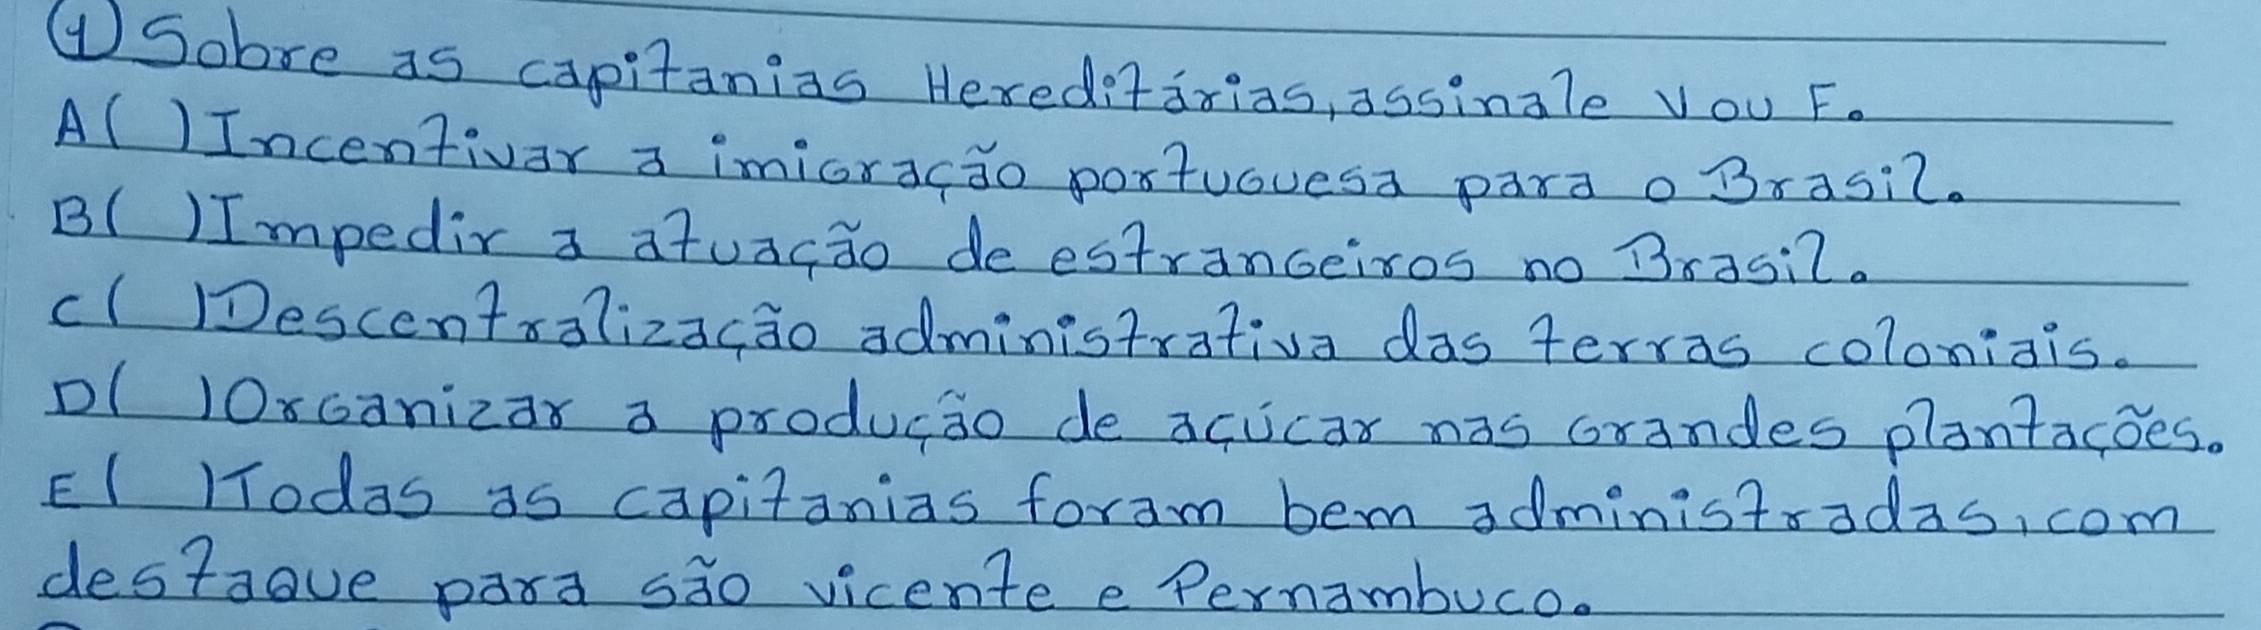 ① Sobre as capitanias Hereditárias, assinale V ou F.
A( ) Incentivar a imigração portuguesa para o Brasil.
B( ) Impedir a atuação de estrangeiros no Brasil.
C( ) Descentralização administrativa das terras coloniais.
D( ) Organizar a produção de açúcar nas grandes plantações.
E( ) Todas as capitanias foram bem administradas, com
destaque para são vicente e Pernambuco.